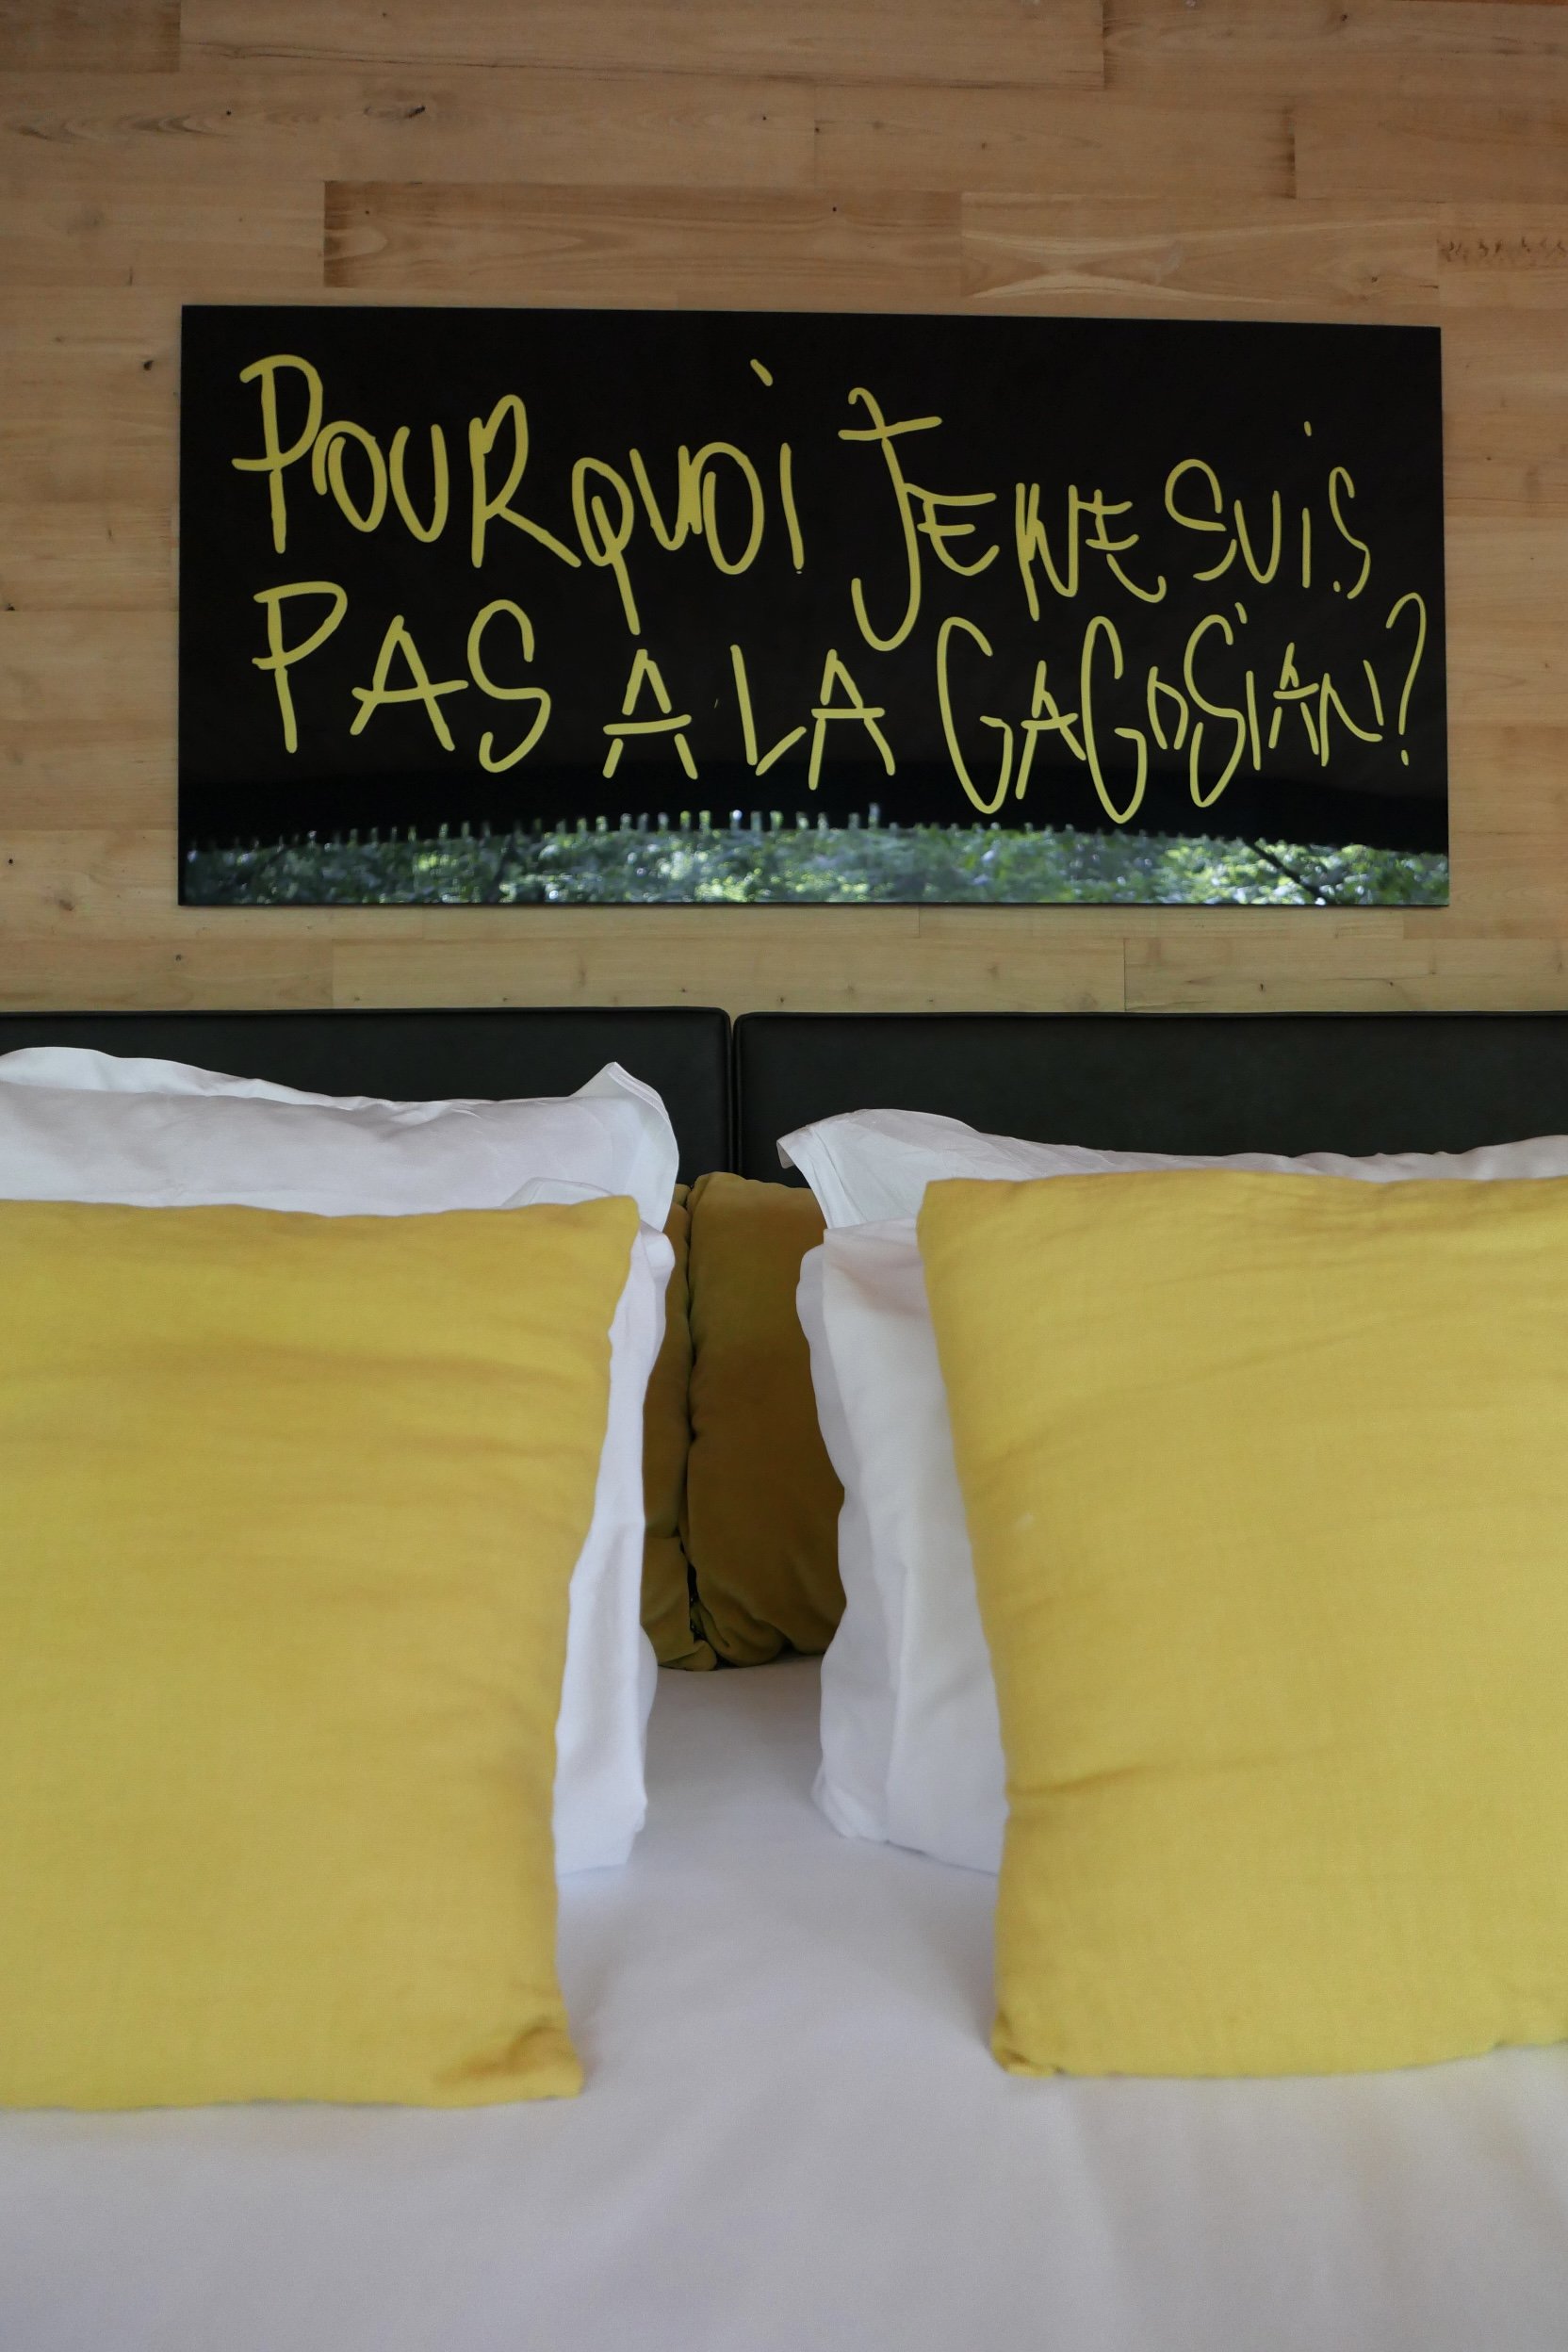 POURQUOI JE NE SUIS
PAS A LA GAGOSIAN?